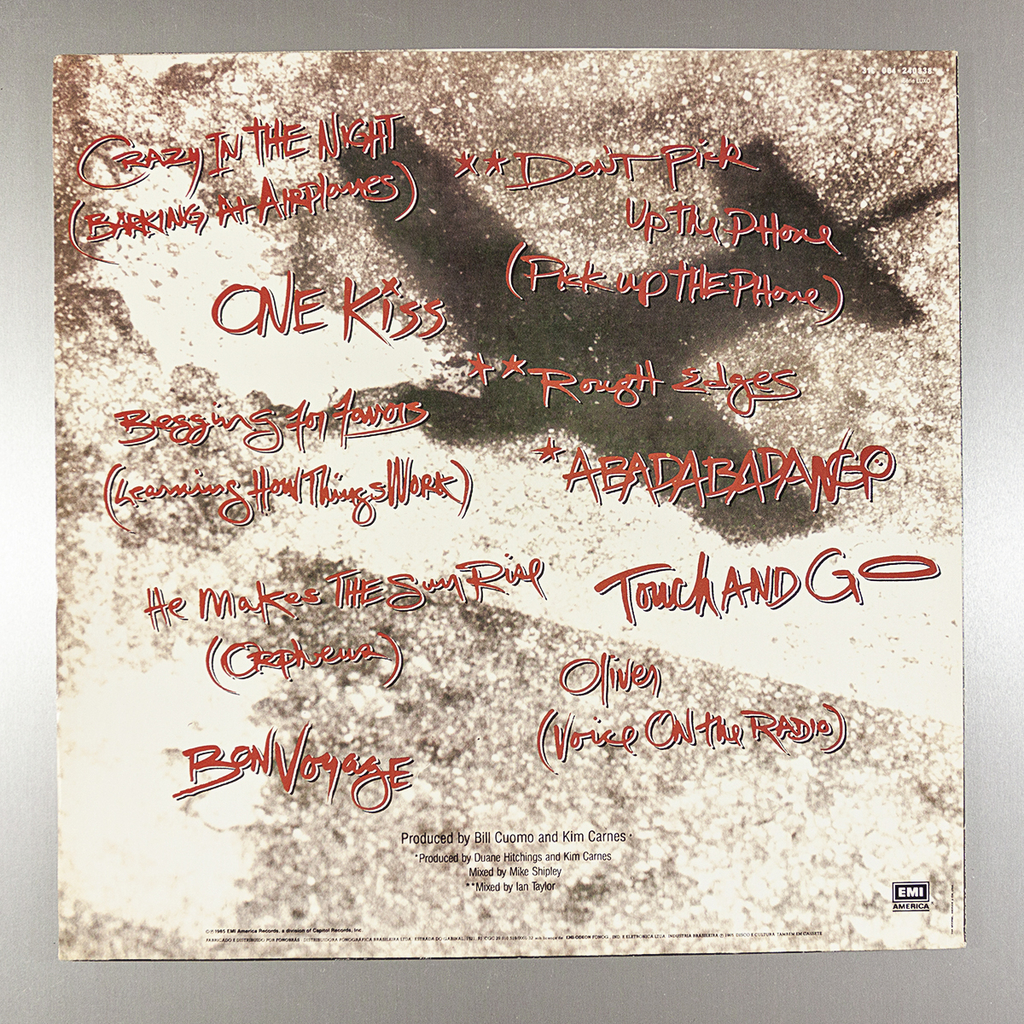 31C 064-240838
Crazy In The Night
(Barking At Airplanes)
One Kiss
Begging for favors
(Learning How Things Work)
He Makes The Sun Rise
(Orpheus)
Bon Voyage
**Don't Pick
Up the Phone
(Pick up the Phone)
**Rough Edges
*ABADABADANGO
Touch AND GO
Oliver
(Voice On the Radio)
Produced by Bill Cuomo and Kim Carnes
*Produced by Duane Hitchings and Kim Carnes
Mixed by Mike Shipley
**Mixed by Ian Taylor
EMI
AMERICA
1985 EMI America Records, a division of Capitol Records, Inc.
FABRICADO E DISTRIBUIDO POR FONOBRÁS - DISTRIBUIDORA FONOGRÁFICA BRASILEIRA LTDA